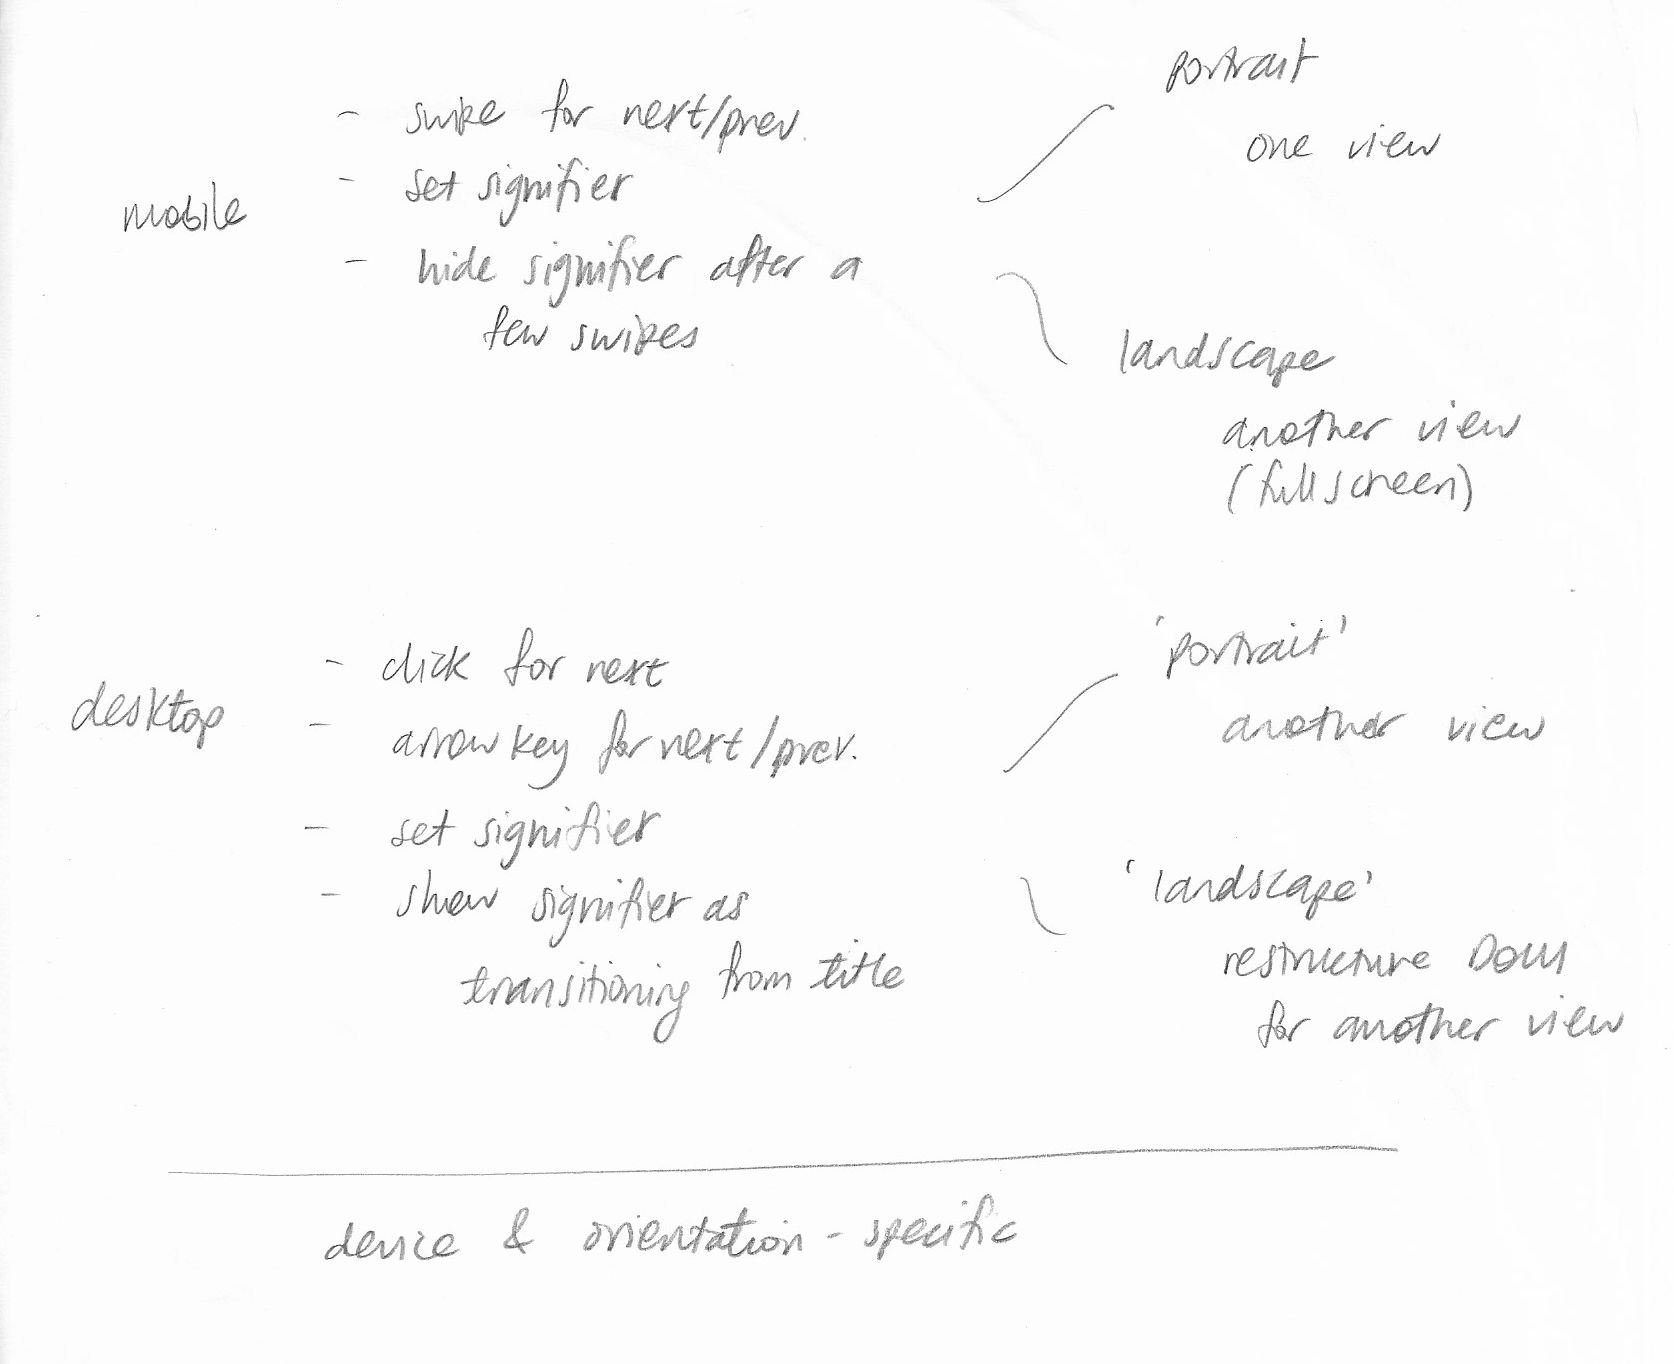 mobile
- swipe for next/prev.
- set signifier
- hide signifier after a
few swipes
portrait
one view
landscape
another view
(fullscreen)
desktop
- click for next
- arrow key for next/prev.
- set signifier
- show signifier as
transitioning from title
'portrait'
another view
'landscape'
restructure DOM
for another view
device & orientation-specific